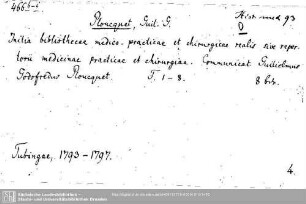 466 b-i
Ploucquet, Guil. G.
Hist. med 93
Initia bibliothecae medico-practicae et chirurgicae realis sive reper-
torii medicinae practicae et chirurgiae. Communicat Guilielmus
Godofredus Ploucquet. T. 1-8. 8 bde.
Tubingae, 1793-1797.
4.
Sächsische Landesbibliothek -
Staats- und Universitätsbibliothek Dresden